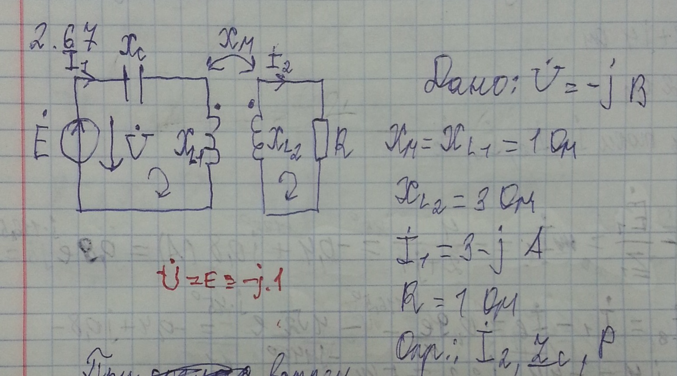 2.67
İ₁ X_C X_M İ₂
Ė U̇ X_L1 X_L2 R
Дано: U̇ = -j В
X_M = X_L1 = 1 Ом
X_L2 = 3 Ом
İ₁ = 3-j А
R = 1 Ом
Опр.: İ₂, Z_C, P
U̇ = E = -j·1
При